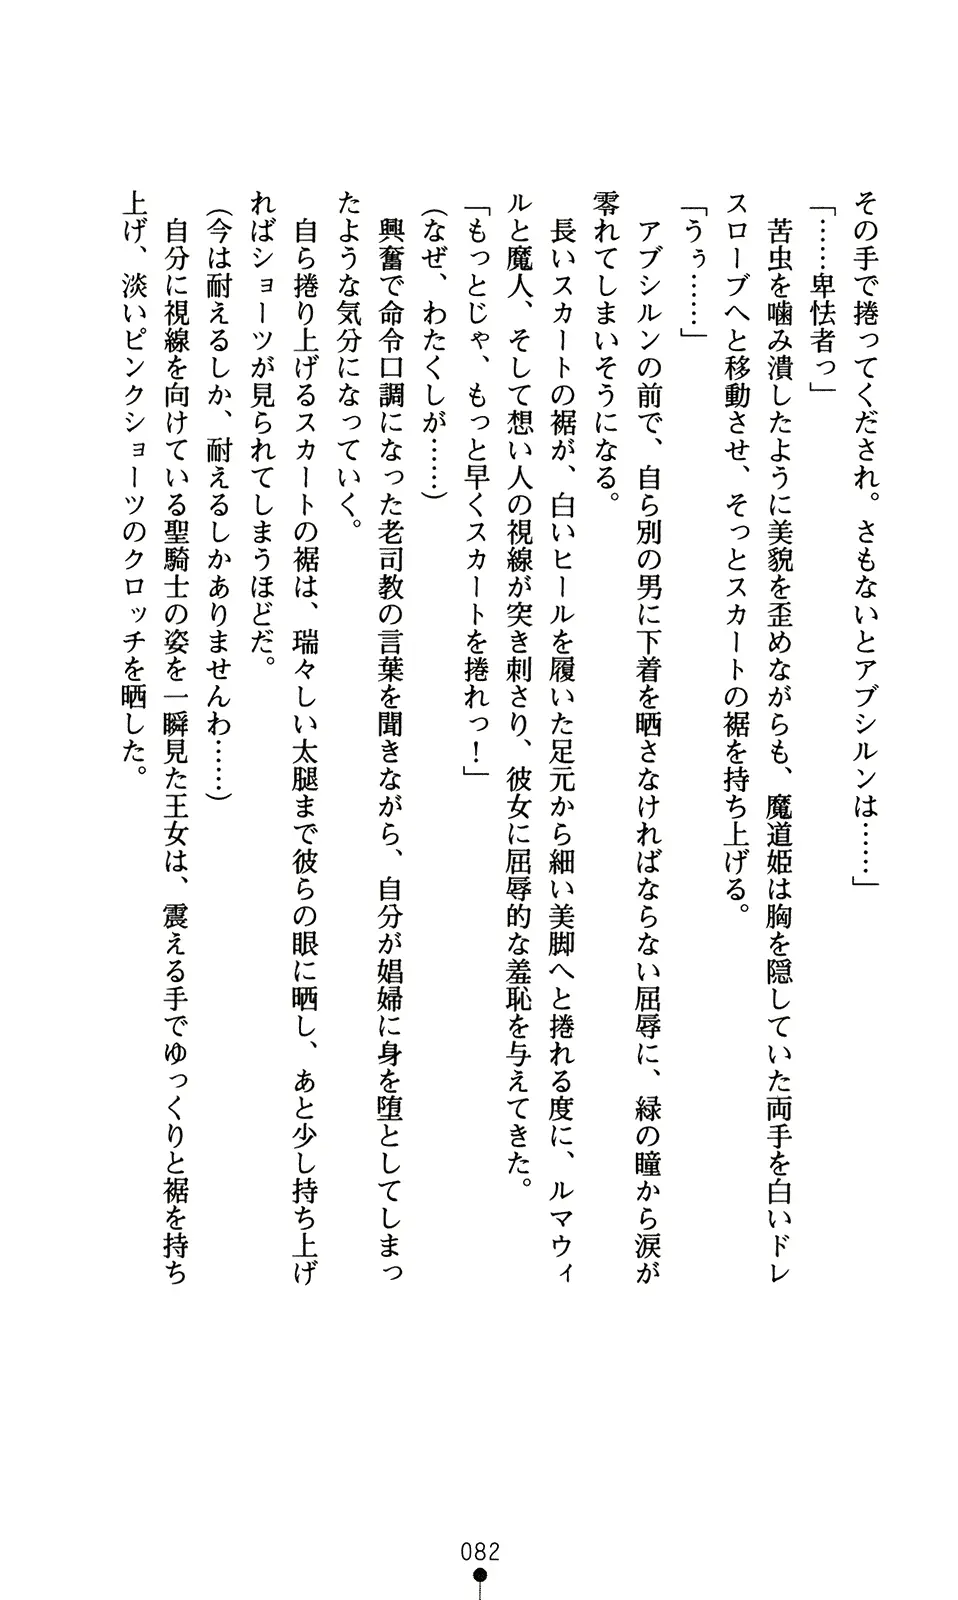 その手で捲ってくだされ。さもないとアブシルンは……」
「……卑怯者っ」
　苦虫を噛み潰したように美貌を歪めながらも、魔道姫は胸を隠していた両手を白いドレ
スロープへと移動させ、そっとスカートの裾を持ち上げる。
「うぅ……」
　アブシルンの前で、自ら別の男に下着を晒さなければならない屈辱に、緑の瞳から涙が
零れてしまいそうになる。
　長いスカートの裾が、白いヒールを履いた足元から細い美脚へと捲れる度に、ルマウィ
ルと魔人、そして想い人の視線が突き刺さり、彼女に屈辱的な羞恥を与えてきた。
「もっとじゃ、もっと早くスカートを捲れっ！」
（なぜ、わたくしが……）
　興奮で命令口調になった老司教の言葉を聞きながら、自分が娼婦に身を堕としてしまっ
たような気分になっていく。
　自ら捲り上げるスカートの裾は、瑞々しい太腿まで彼らの眼に晒し、あと少し持ち上げ
ればショーツが見られてしまうほどだ。
（今は耐えるしか、耐えるしかありませんわ……）
　自分に視線を向けている聖騎士の姿を一瞬見た王女は、震える手でゆっくりと裾を持ち
上げ、淡いピンクショーツのクロッチを晒した。
082